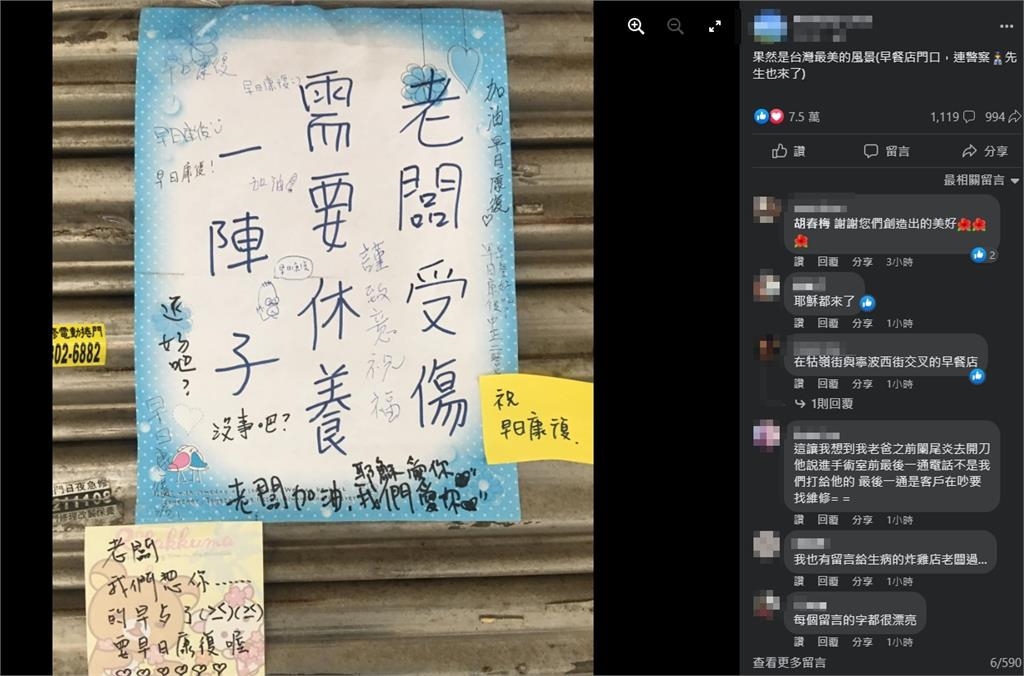 老闆受傷
需要休養
一陣子
謹致意祝福
加油早日康復
早日康復
早日康復
早日康復
早日康復!
加油
早日康復
還好吧?
沒事吧?
祝
早日康復.
耶穌愛你
老闆加油,我們愛妳
老闆
我們想你......
的早点了(≥≤)(≥≤)
要早日康復喔
♡♡♡♡♡♡
修電動捲門
602-6882
果然是台灣最美的風景(早餐店門口，連警察👮先
生也來了)
7.5 萬
1,119
994
讚
留言
分享
最相關留言
胡春梅 謝謝您們創造出的美好🌺🌺
🌺
2
讚 回覆 分享 3小時
耶穌都來了
讚 回覆 分享 1小時
在牯嶺街與寧波西街交叉的早餐店
讚 回覆 分享 1小時
1則回覆
這讓我想到我老爸之前闌尾炎去開刀
他說進手術室前最後一通電話不是我
們打給他的 最後一通是客戶在吵要
找維修= =
讚 回覆 分享 1小時
我也有留言給生病的炸雞店老闆過...
讚 回覆 分享 1小時
每個留言的字都很漂亮
讚 回覆 分享 1小時
查看更多留言
6/590